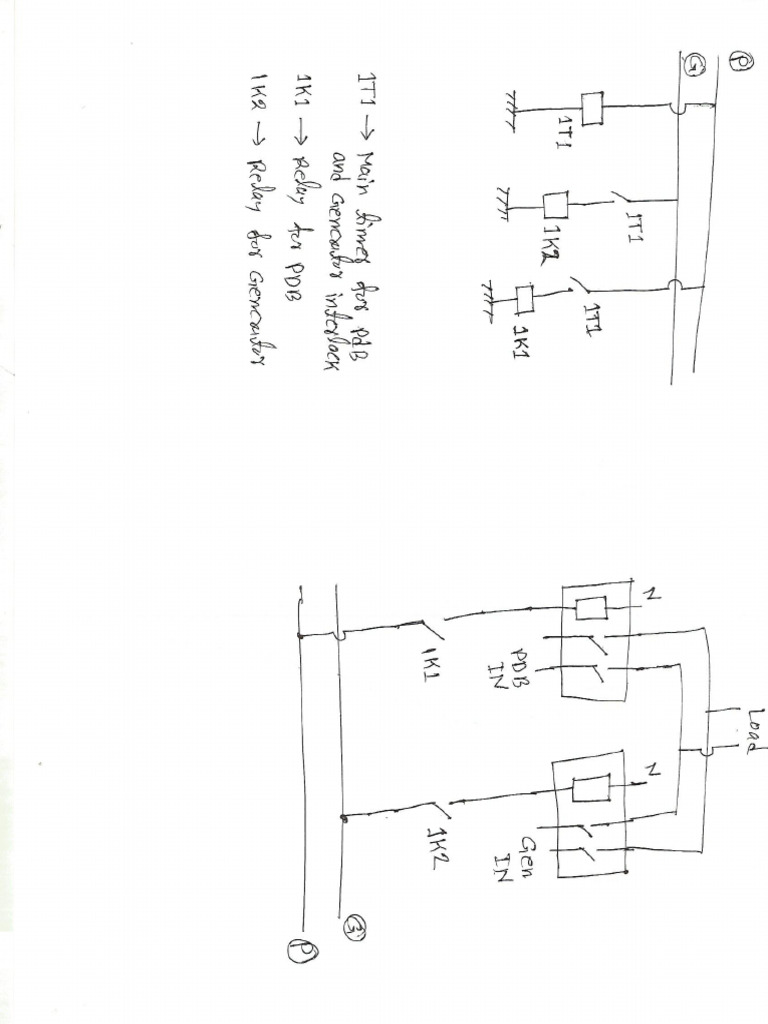 P
G
1T1
1T1
1K2
1T1
1K1
1T1 → Main timer for PdB
and Generator interlock
1K1 → Relay for PDB
1K2 → Relay for Generator
Load
N
PDB
IN
N
Gen
IN
1K1
1K2
G
P